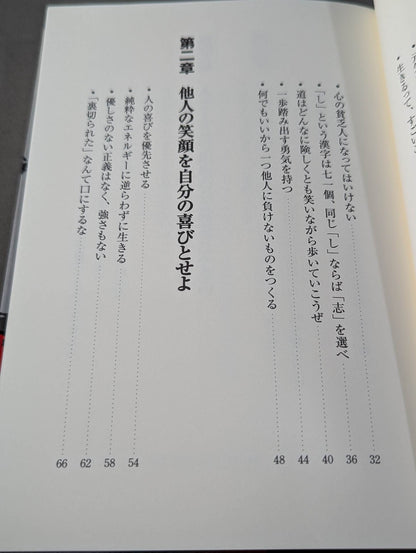 生きるって、すごい
・心の貧乏人になってはいけない 32
・「し」という漢字は七一個、同じ「し」ならば「志」を選べ 36
・道はどんなに険しくとも笑いながら歩いていこうぜ 40
・一歩踏み出す勇気を持つ 44
・何でもいいから一つ他人に負けないものをつくる 48
第二章 他人の笑顔を自分の喜びとせよ
・人の喜びを優先させる 54
・純粋なエネルギーに逆らわずに生きる 58
・優しさのない正義はなく、強さもない 62
・「裏切られた」なんて口にするな 66